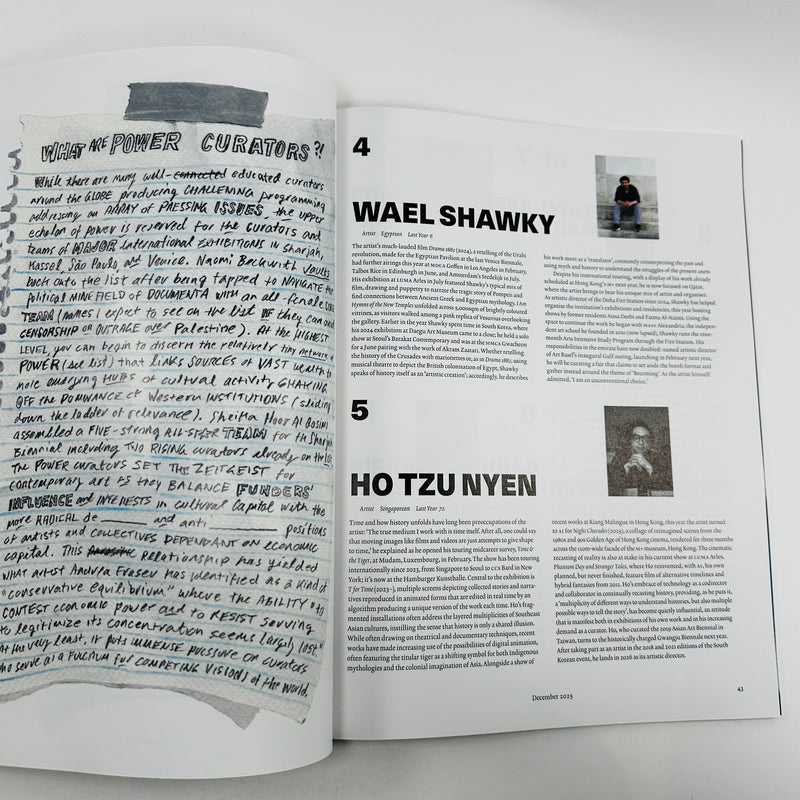 WHAT ARE POWER CURATORS?!
While there are many well-connected educated curators
around the GLOBE producing CHALLENGING programming
addressing an ARRAY of PRESSING ISSUES, the upper
echelon of power is reserved for the curators and
teams of MAJOR international EXHIBITIONS in Sharjah,
Kassel, São Paulo, and Venice. Naomi Beckwith vaults
back onto the list after being tapped to NAVIGATE the
political MINEFIELD of DOCUMENTA with an all-female CORE
TEAM (names I expect to see on the list IF they can avoid
CENSORSHIP or OUTRAGE over Palestine). At the HIGHEST
LEVEL, you can begin to discern the relatively tiny network of
POWER (see list) that links SOURCES of VAST wealth to
more emerging HUBS of cultural activity SHAKING
OFF the DOMINANCE of Western INSTITUTIONS (sliding
down the ladder of relevance). Sheikha Hoor Al Qasimi
assembled a FIVE-strong ALL-STAR TEAM for the Sharjah
Biennial including TWO RISING curators already on the list.
The POWER curators SET THE ZEITGEIST for
contemporary art as they BALANCE FUNDERS'
INFLUENCE and INTERESTS in cultural capital with the
more RADICAL de ______ and anti ______ positions
of artists and COLLECTIVES DEPENDANT ON economic
capital. This relationship has yielded
what artist Andrea Fraser has identified as a kind of
"conservative equilibrium" where the ABILITY "to
CONTEST economic power and to RESIST serving
to legitimize its concentration seems largely lost"
At the very least, it puts IMMENSE PRESSURE on curators
who serve as a FULCRUM for COMPETING VISIONS of the world.
4
WAEL SHAWKY
Artist Egyptian Last Year 6
The artist's much-lauded film Drama 1882 (2024), a retelling of the Urabi
revolution, made for the Egyptian Pavilion at the last Venice Biennale,
had further airings this year at MOCA Geffen in Los Angeles in February,
Talbot Rice in Edinburgh in June, and Amsterdam's Stedelijk in July.
His exhibition at LUMA Arles in July featured Shawky's typical mix of
film, drawing and puppetry to narrate the tragic story of Pompeii and
find connections between Ancient Greek and Egyptian mythology. I Am
Hymns of the New Temples unfolded across 5,000sqm of brightly coloured
vitrines, as visitors walked among a pink replica of Vesuvius overlooking
the gallery. Earlier in the year Shawky spent time in South Korea, where
his 2024 exhibition at Daegu Art Museum came to a close; he held a solo
show at Seoul's Barakat Contemporary and was at the MMCA Gwacheon
for a June pairing with the work of Akram Zaatari. Whether retelling
the history of the Crusades with marionettes or, as in Drama 1882, using
musical theatre to depict the British colonisation of Egypt, Shawky
speaks of history itself as an 'artistic creation'; accordingly, he describes
his work more as a 'translator', constantly reinterpreting the past and
using myth and history to understand the struggles of the present anew.
Despite his international touring, with a display of his work already
scheduled at Hong Kong's M+ next year, he is now focused on Qatar,
where the artist brings to bear his unique mix of artist and organiser.
As artistic director of the Doha Fire Station since 2024, Shawky has helped
organise the institution's exhibitions and residencies, this year hosting
shows by former residents Amna Derbi and Fatma Al-Naimi. Using the
space to continue the work he began with MASS Alexandria, the independ-
ent art school he founded in 2010 (now lapsed), Shawky runs the nine-
month Arts Intensive Study Program through the Fire Station. His
responsibilities in the emirate have now doubled: named artistic director
of Art Basel's inaugural Gulf outing, launching in February next year,
he will be curating a fair that claims to set aside the booth format and
gather instead around the theme of 'Becoming'. As the artist himself
admitted, 'I am an unconventional choice.'
5
HO TZU NYEN
Artist Singaporean Last Year 72
Time and how history unfolds have long been preoccupations of the
artist: 'The true medium I work with is time itself. After all, one could say
that moving images like films and videos are just attempts to give shape
to time,' he explained as he opened his touring midcareer survey, Time &
the Tiger, at Mudam, Luxembourg, in February. The show has been touring
internationally since 2023, from Singapore to Seoul to CCS Bard in New
York; it's now at the Hamburger Kunsthalle. Central to the exhibition is
T for Time (2023–), multiple screens depicting collected stories and narra-
tives reproduced in animated forms that are edited in real time by an
algorithm producing a unique version of the work each time. Ho's frag-
mented installations often address the layered multiplicities of Southeast
Asian cultures, insisting the sense that history is only a shared illusion.
While often drawing on theatrical and documentary techniques, recent
works have made increasing use of the possibilities of digital animation,
often featuring the titular tiger as a shifting symbol for both Indigenous
mythologies and the colonial imagination of Asia. Alongside a show of
recent works at Kiang Malingue in Hong Kong, this year the artist turned
to AI for Night Charades (2025), a collage of reimagined scenes from the
1980s and 90s Golden Age of Hong Kong cinema, rendered for three months
across the 110m-wide facade of the M+ museum, Hong Kong. The cinematic
recasting of reality is also at stake in his current show at LUMA Arles,
Phantom Day and Stranger Tales, where Ho reinvented, with AI, his own
planned, but never finished, feature film of alternative timelines and
hybrid fantasies from 2011. Ho's embrace of technology as a codirector
and collaborator in continually recasting history, providing, as he puts it,
a 'multiplicity of different ways to understand histories, but also multiple
possible ways to tell the story', has become quietly influential, an attitude
that is manifest both in exhibitions of his own work and in his increasing
demand as a curator. Ho, who curated the 2019 Asian Art Biennial in
Taiwan, turns to the historically charged Gwangju Biennale next year.
After taking part as an artist in the 2018 and 2021 editions of the South
Korean event, he lands in 2026 as its artistic director.
December 2025
43